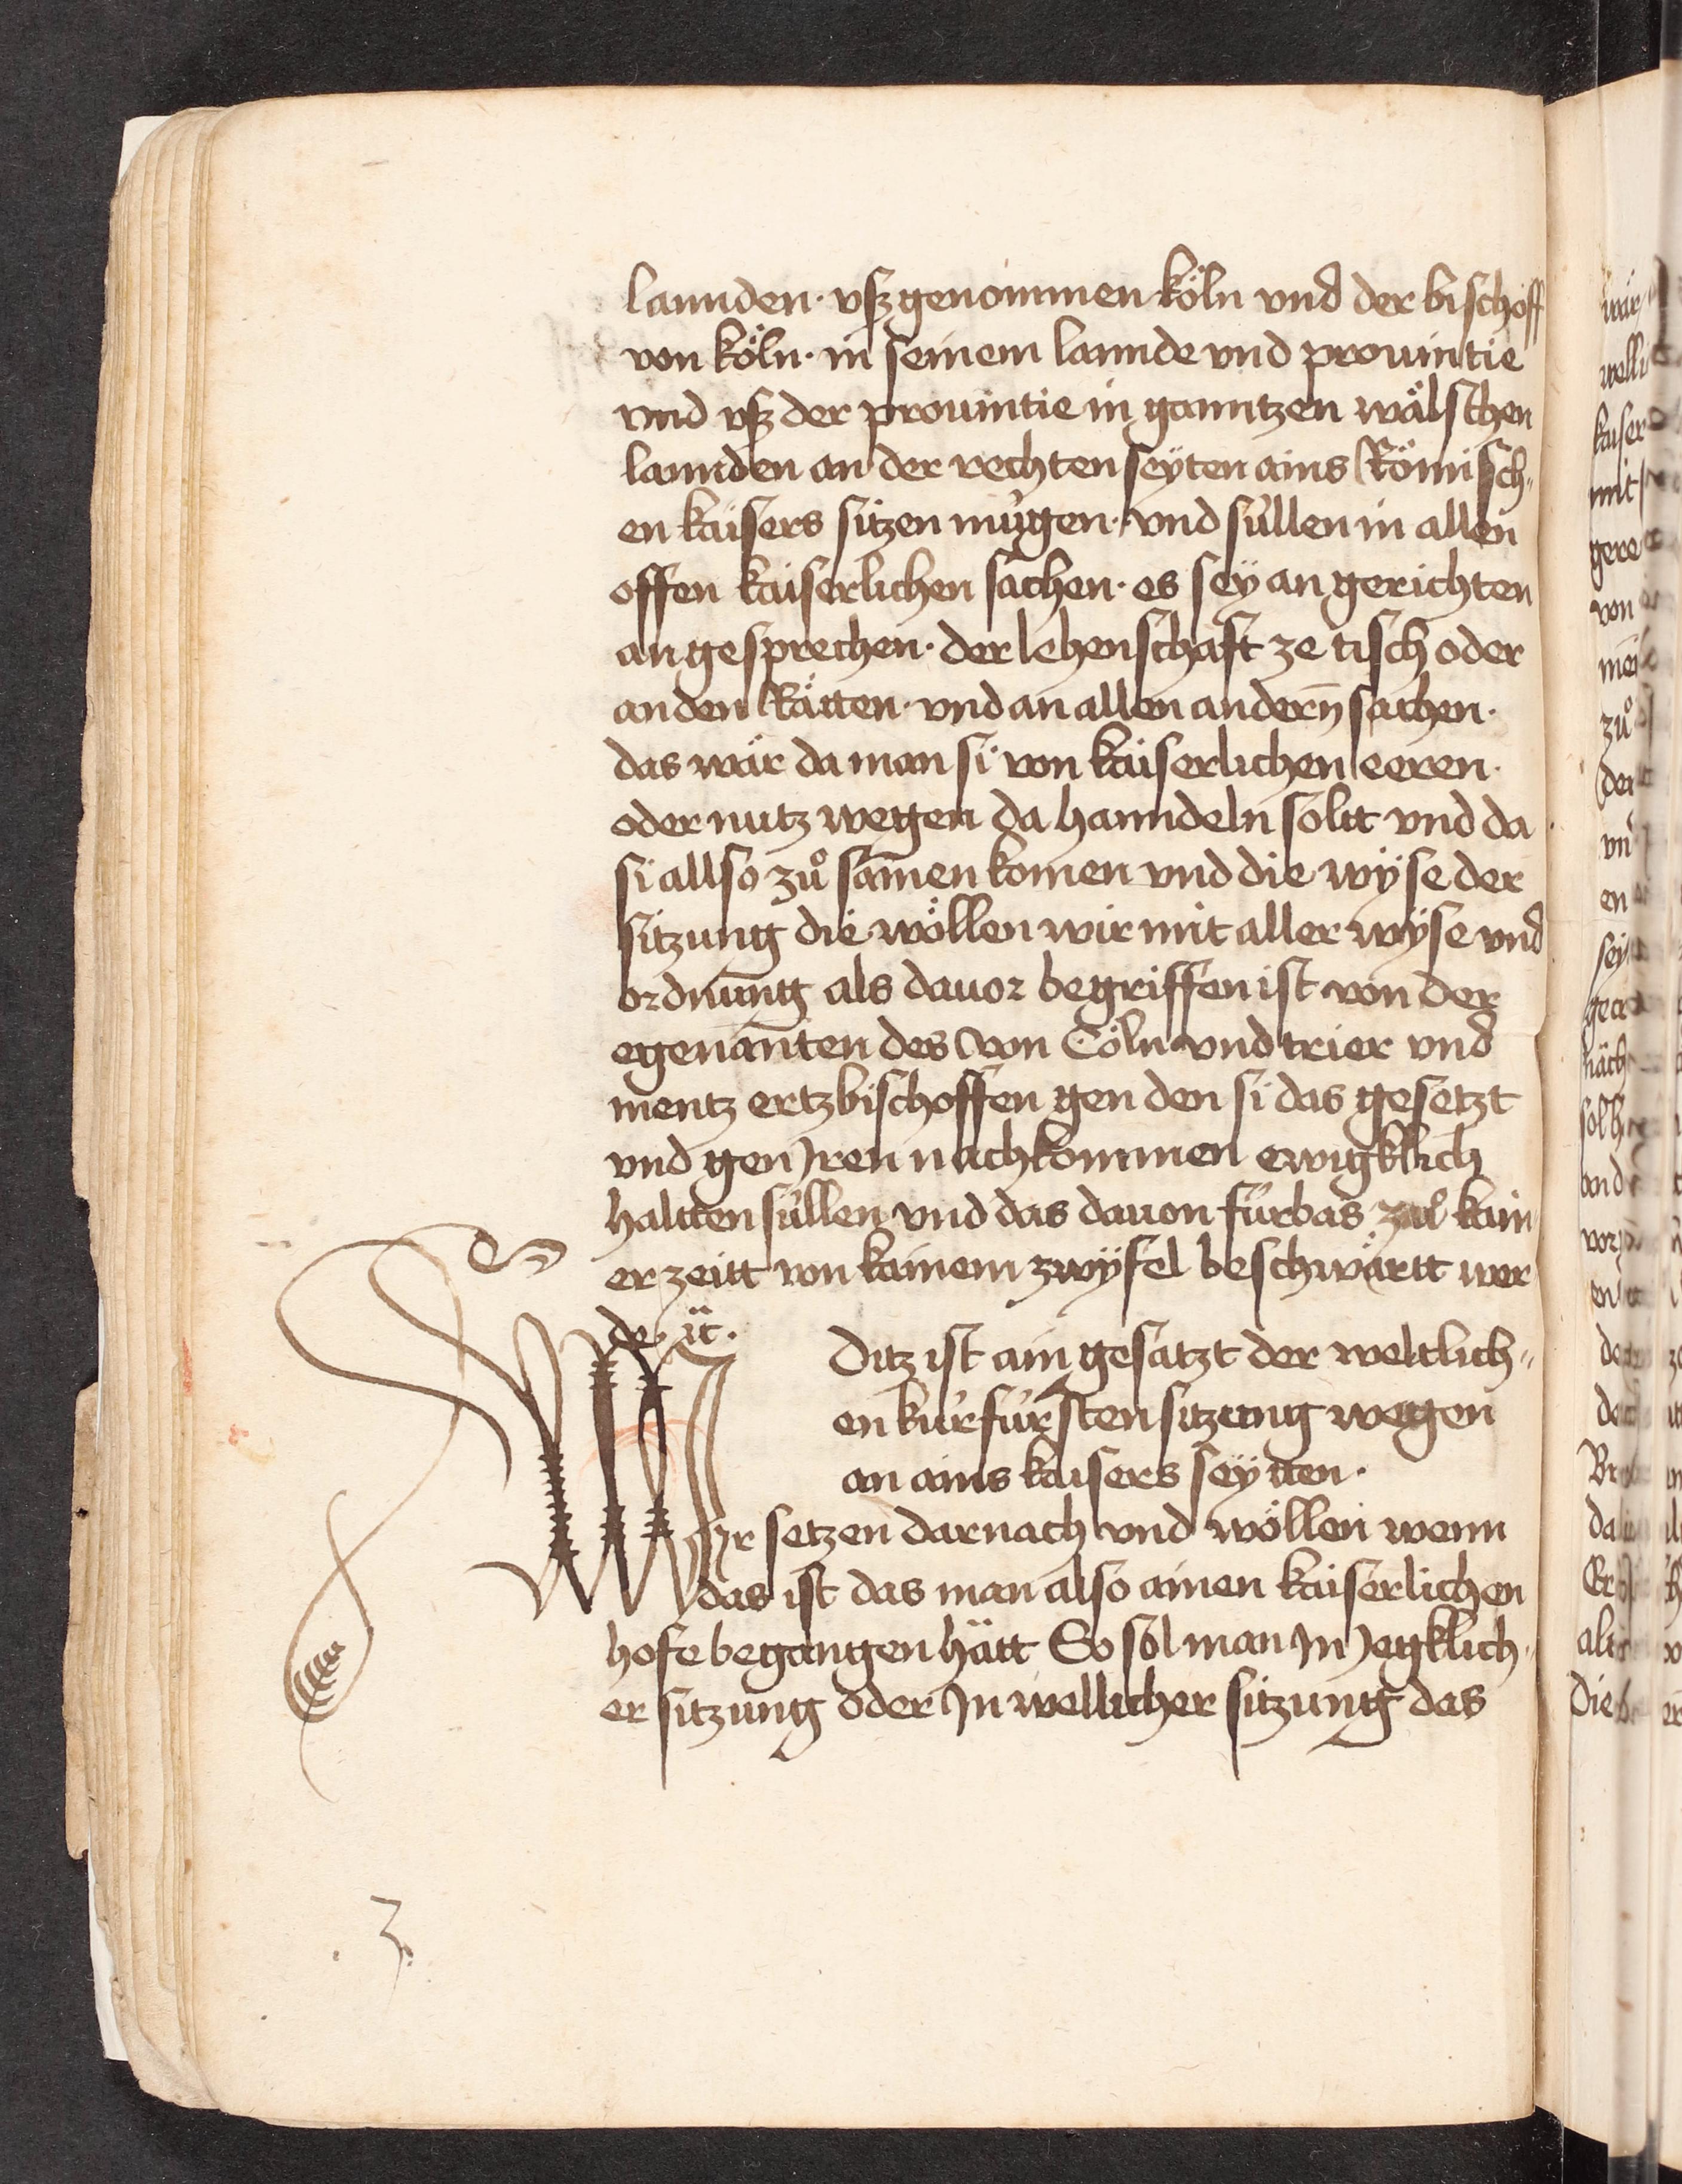 lannden · vßgenommen köln vnd der bischoff
von köln · in seinem lannde vnd prouintie
vnd vß der prouintie in ganntzen wälschen
lannden an der rechten seÿten ains Römisch„
en kaisers sitzen mügen · vnd süllen in allen
offen kaiserlichen sachen · es seÿ an gerichten
an gesprechen · der lehenschafft ze tisch oder
an den Rätten · vnd an allen andern̄ sachen ·
das wär da man si von kaiserlichen eeren ·
oder nutz wegen da hanndeln soltt vnd da
si allso zuͦ samen komen vnd die wÿse der
sitzung die wöllen wir mit aller wÿse vnd
ordnung als dauor begriffen ist von der
egenanten des von Cöln vnd trier vnd
mentz ertzbischoffen gen den si das gesetzt
vnd gen Jren nachkommen ewigklich
haltten süllen vnd das dauon fürbas zuͦ kain
er zeitt von kainem zwÿfel beschwärtt wer
de ⁊c̈ ·
Ditz ist ain gesatzt der weltlich„
en kurfürsten sitzung wegen
an ains kaisers seÿtten ·
Wir setzen darnach vnd wöllen wenn
das ist das man also ainen kaiserlichen
hofe begangen hätt So sol man Jn Jegklich„
er sitzung oder Jn wellicher sitzung das
· 3 ·